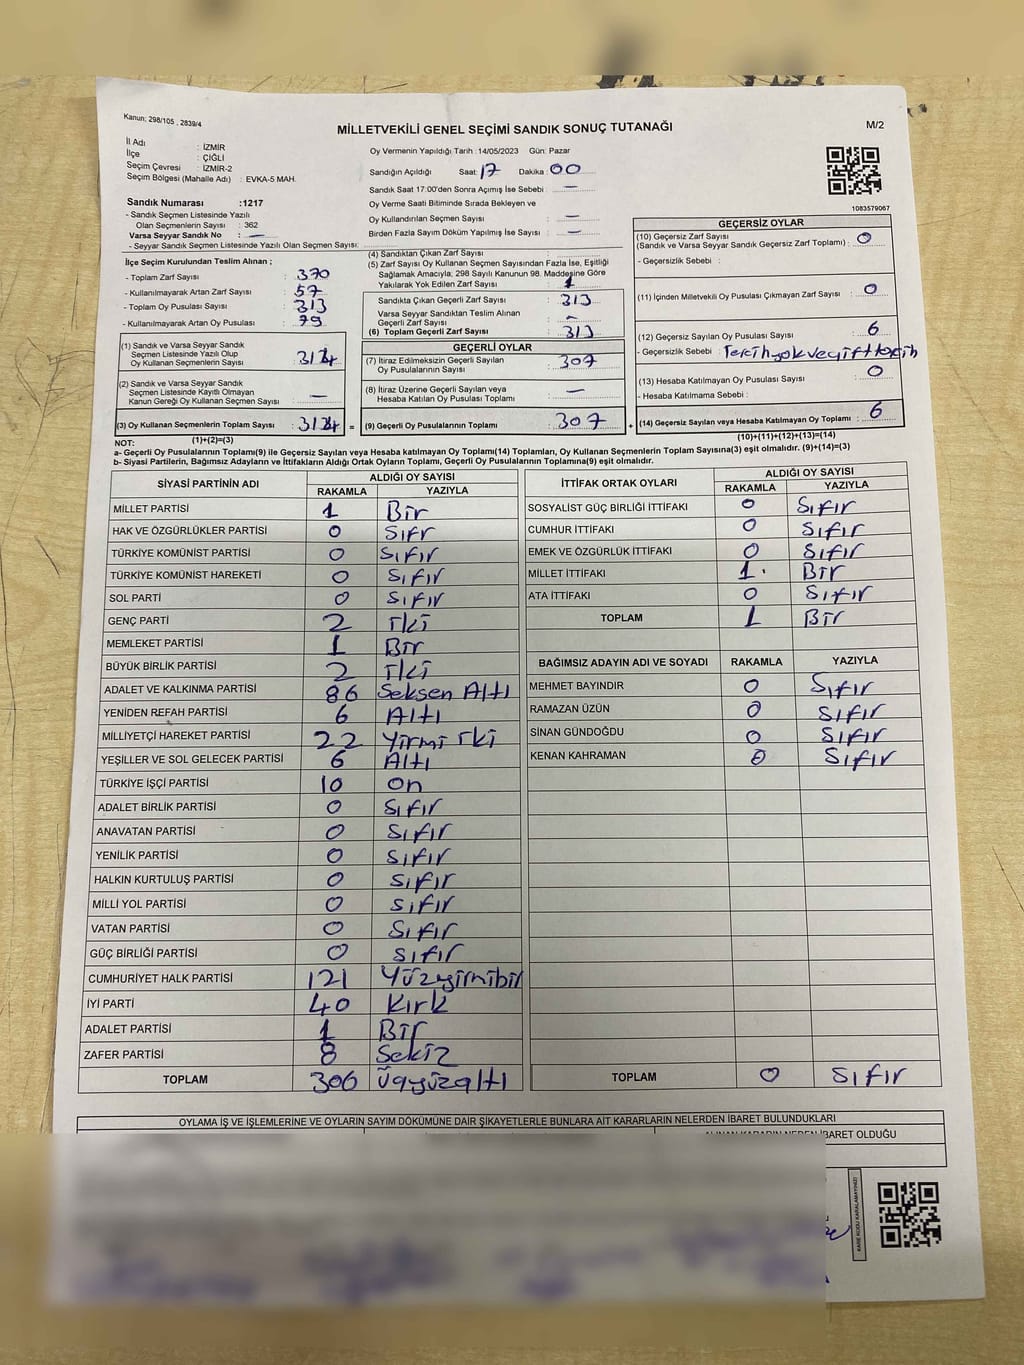 Kanun: 298/105 , 2839/4
MİLLETVEKİLİ GENEL SEÇİMİ SANDIK SONUÇ TUTANAĞI
M/2
İl Adı : İZMİR
İlçe : ÇİĞLİ
Seçim Çevresi : İZMİR-2
Seçim Bölgesi (Mahalle Adı) : EVKA-5 MAH.
Oy Vermenin Yapıldığı Tarih : 14/05/2023 Gün: Pazar
Sandığın Açıldığı Saat: 17 Dakika : 00
Sandık Saat 17.00'den Sonra Açımış İse Sebebi : —
Oy Verme Saati Bitiminde Sırada Bekleyen ve
Oy Kullandırılan Seçmen Sayısı : —
Birden Fazla Sayım Döküm Yapılmış İse Sayısı : —
1083579067
Sandık Numarası :1217
- Sandık Seçmen Listesinde Yazılı
Olan Seçmenlerin Sayısı : 362
Varsa Seyyar Sandık No : —
- Seyyar Sandık Seçmen Listesinde Yazılı Olan Seçmen Sayısı:
İlçe Seçim Kurulundan Teslim Alınan ;
- Toplam Zarf Sayısı : 370
- Kullanılmayarak Artan Zarf Sayısı : 57
- Toplam Oy Pusulası Sayısı : 313
- Kullanılmayarak Artan Oy Pusulası : 79
(1) Sandık ve Varsa Seyyar Sandık
Seçmen Listesinde Yazılı Olup
Oy Kullanan Seçmenlerin Sayısı :
(2) Sandık ve Varsa Seyyar Sandık
Seçmen Listesinde Kayıtlı Olmayan
Kanun Gereği Oy Kullanan Seçmen Sayısı : —
(3) Oy Kullanan Seçmenlerin Toplam Sayısı :
(1)+(2)=(3)
(4) Sandıktan Çıkan Zarf Sayısı :
(5) Zarf Sayısı Oy Kullanan Seçmen Sayısından Fazla İse, Eşitliği
Sağlamak Amacıyla; 298 Sayılı Kanunun 98. Maddesine Göre
Yakılarak Yok Edilen Zarf Sayısı : 1
Sandıkta Çıkan Geçerli Zarf Sayısı : 313
Varsa Seyyar Sandıktan Teslim Alınan
Geçerli Zarf Sayısı : –
(6) Toplam Geçerli Zarf Sayısı : 313
GEÇERLİ OYLAR
(7) İtiraz Edilmeksizin Geçerli Sayılan
Oy Pusulalarının Sayısı : 307
(8) İtiraz Üzerine Geçerli Sayılan veya
Hesaba Katılan Oy Pusulaları Toplamı : —
= (9) Geçerli Oy Pusulalarının Toplamı : 307
GEÇERSİZ OYLAR
(10) Geçersiz Zarf Sayısı
(Sandık ve Varsa Seyyar Sandık Geçersiz Zarf Toplamı) : 0
- Geçersizlik Sebebi :
(11) İçinden Milletvekili Oy Pusulası Çıkmayan Zarf Sayısı : 0
(12) Geçersiz Sayılan Oy Pusulası Sayısı : 6
- Geçersizlik Sebebi : Tercih yok ve çift tercih
(13) Hesaba Katılmayan Oy Pusulası Sayısı : 0
- Hesaba Katılmama Sebebi :
+ (14) Geçersiz Sayılan veya Hesaba Katılmayan Oy Toplamı : 6
(10)+(11)+(12)+(13)=(14)
NOT:
a- Geçerli Oy Pusulalarının Toplamı(9) ile Geçersiz Sayılan veya Hesaba katılmayan Oy Toplamı(14) Toplamları, Oy Kullanan Seçmenlerin Toplam Sayısına(3) eşit olmalıdır. (9)+(14)=(3)
b- Siyasi Partilerin, Bağımsız Adayların ve İttifakların Aldığı Ortak Oyların Toplamı, Geçerli Oy Pusulalarının Toplamına(9) eşit olmalıdır.
SİYASİ PARTİNİN ADI ALDIĞI OY SAYISI
RAKAMLA YAZIYLA
MİLLET PARTİSİ 1 Bir
HAK VE ÖZGÜRLÜKLER PARTİSİ 0 Sıfr
TÜRKİYE KOMÜNİST PARTİSİ 0 Sıfır
TÜRKİYE KOMÜNİST HAREKETİ 0 Sıfır
SOL PARTİ 0 Sıfır
GENÇ PARTİ 2 İki
MEMLEKET PARTİSİ 1 Bir
BÜYÜK BİRLİK PARTİSİ 2 İki
ADALET VE KALKINMA PARTİSİ 86 Seksen Altı
YENİDEN REFAH PARTİSİ 6 Altı
MİLLİYETÇİ HAREKET PARTİSİ 22 Yirmi İki
YEŞİLLER VE SOL GELECEK PARTİSİ 6 Altı
TÜRKİYE İŞÇİ PARTİSİ 10 On
ADALET BİRLİK PARTİSİ 0 Sıfır
ANAVATAN PARTİSİ 0 Sıfır
YENİLİK PARTİSİ 0 Sıfır
HALKIN KURTULUŞ PARTİSİ 0 Sıfır
MİLLİ YOL PARTİSİ 0 Sıfır
VATAN PARTİSİ 0 Sıfır
GÜÇ BİRLİĞİ PARTİSİ 0 Sıfır
CUMHURİYET HALK PARTİSİ 121 Yüzyirmibir
İYİ PARTİ 40 Kırk
ADALET PARTİSİ 1 Bir
ZAFER PARTİSİ 8 Sekiz
TOPLAM 306 Üçyüzaltı
İTTİFAK ORTAK OYLARI ALDIĞI OY SAYISI
RAKAMLA YAZIYLA
SOSYALİST GÜÇ BİRLİĞİ İTTİFAKI 0 Sıfır
CUMHUR İTTİFAKI 0 Sıfır
EMEK VE ÖZGÜRLÜK İTTİFAKI 0 Sıfır
MİLLET İTTİFAKI 1 Bir
ATA İTTİFAKI 0 Sıfır
TOPLAM 1 Bir
BAĞIMSIZ ADAYIN ADI VE SOYADI RAKAMLA YAZIYLA
MEHMET BAYINDIR 0 Sıfır
RAMAZAN ÜZÜN 0 Sıfır
SİNAN GÜNDOĞDU 0 Sıfır
KENAN KAHRAMAN 0 Sıfır
TOPLAM 0 Sıfır
OYLAMA İŞ VE İŞLEMLERİNE VE OYLARIN SAYIM DÖKÜMÜNE DAİR ŞİKAYETLERLE BUNLARA AİT KARARLARIN NELERDEN İBARET BULUNDUKLARI
ALINAN KARARIN NEDEN İBARET OLDUĞU
KARE KODU KARALAMAYINIZ!